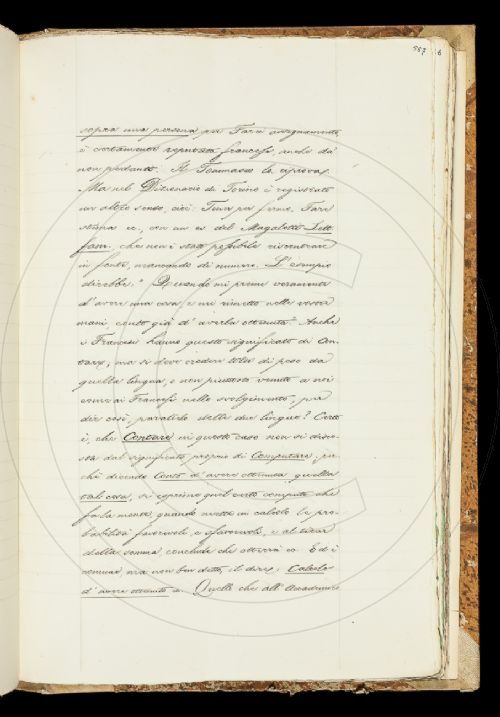 557 6
sopra una persona, per Farvi assegnamento,
è certamente reputato francese, anche da
non pedanti. Il Tommaseo lo riprova.
Ma nel Dizionario di Torino è registrato
un altro senso, cioè Tener per fermo, Fare
stima ec., con un es. del Magalotti Lett.
fam., che non è stato possibile riscontrare
in fonte, mancando di numero. L'esempio
direbbe: "Quando mi preme veramente
d'avere una cosa, e mi rimetto nelle vostre
mani, conto già d'averla ottenuta." Anche
i Francesi hanno questo significato di Con-
tare, ma si deve credere tolto di peso da
quella lingua, e non piuttosto venuto a noi
come ai Francesi nello svolgimento, per
dir così, parallelo delle due lingue? Certo
è, che Contare in questo caso non si disco-
sta dal significato proprio di Computare, per-
chè dicendo Conto d'avere ottenuta quella
tal cosa, si esprime quel certo computo che
fa la mente, quando mette in calcolo le pro-
babilità favorevoli, e sfavorevoli, e al tirar
della somma, conclude che otterrà ec. Ed è
comune, ma non ben detto, il dire: Calcolo
d'avere ottenuto ec. Quello che all'Accademico